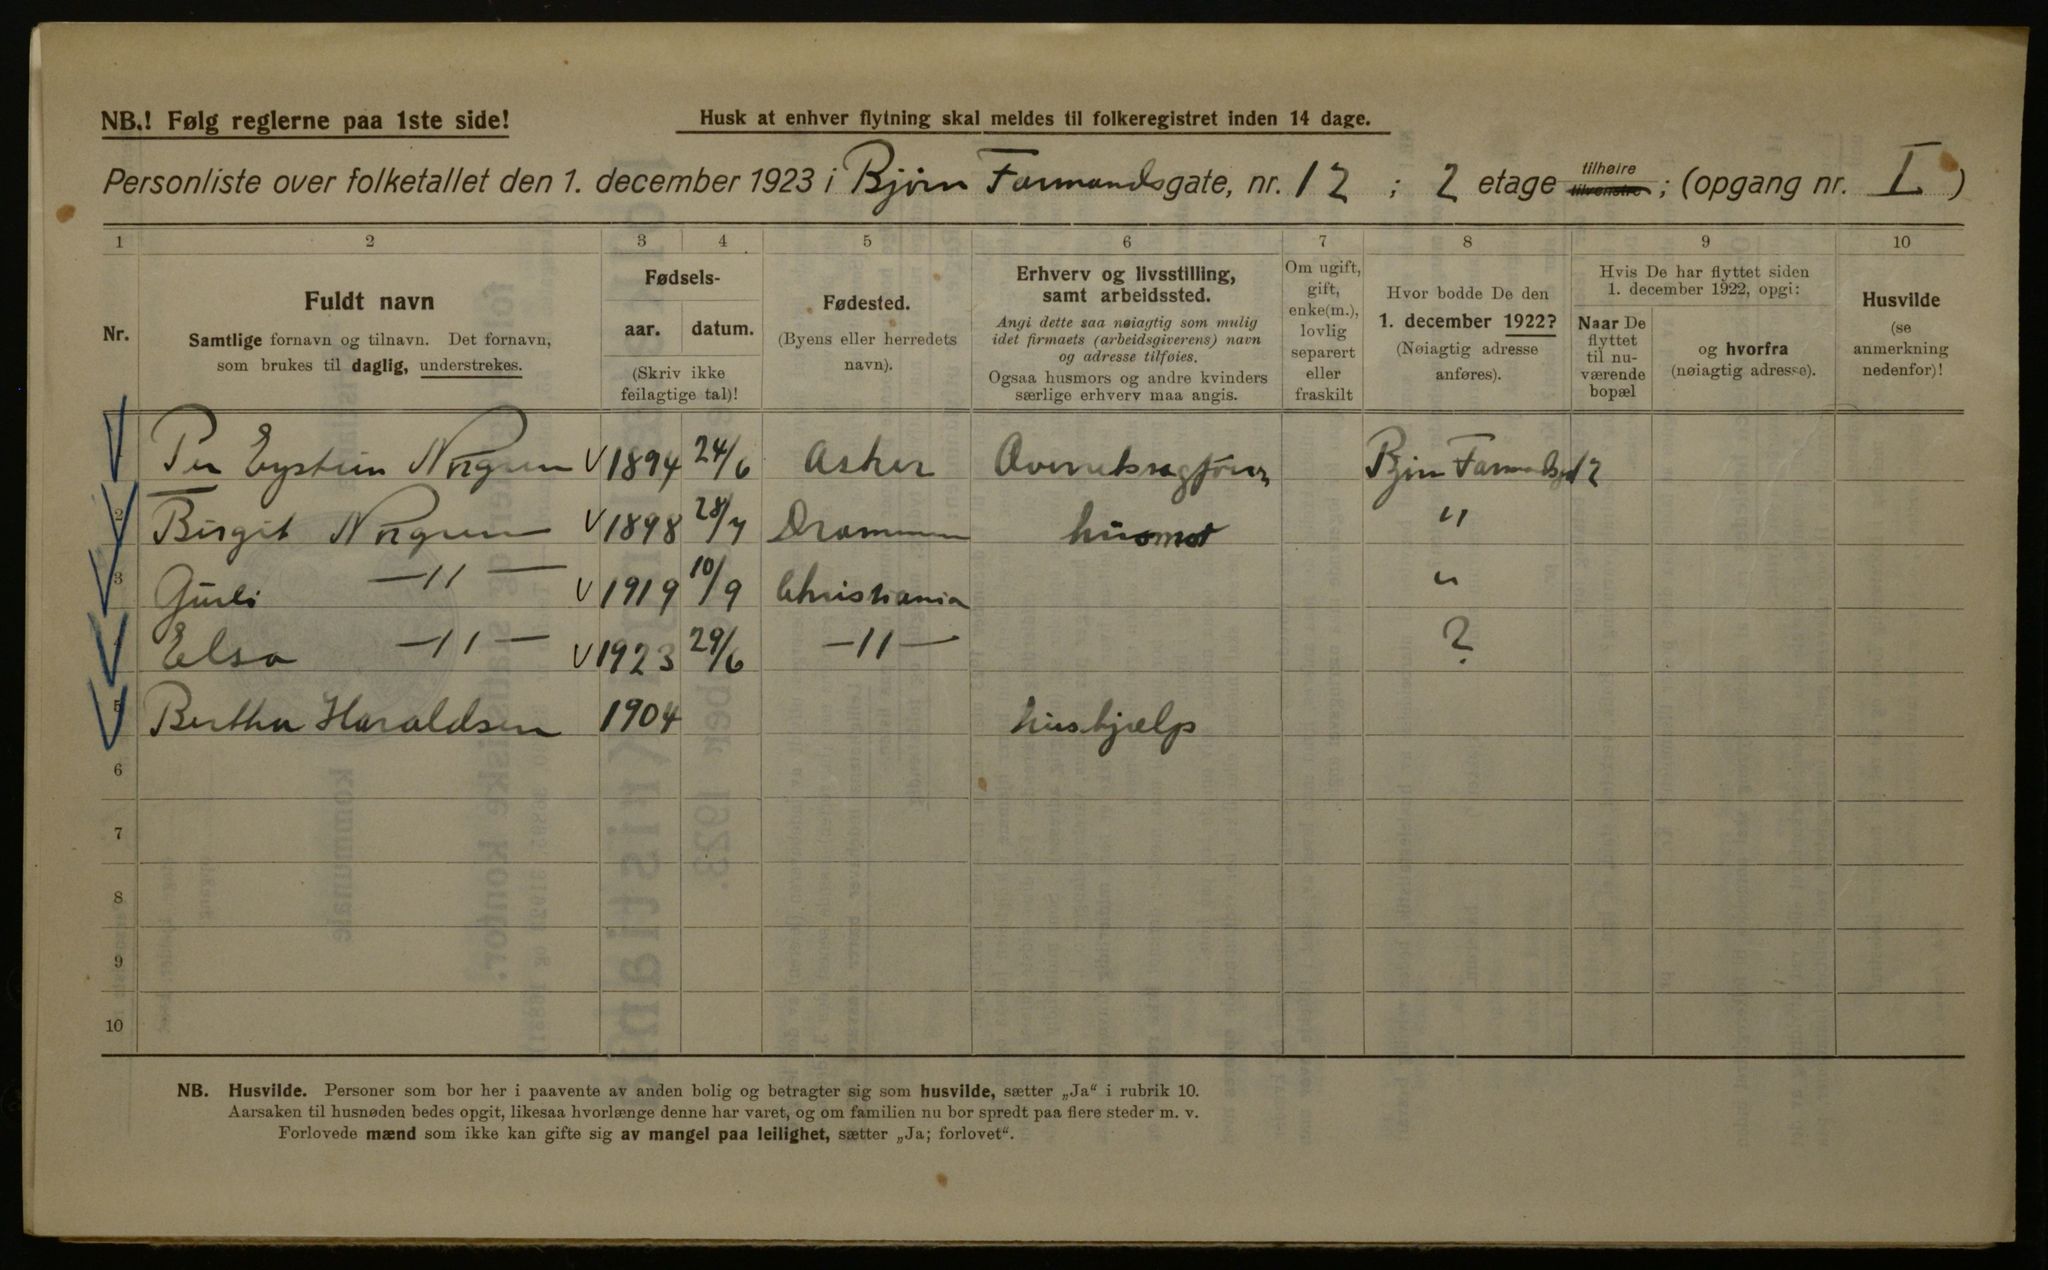 NB.! Følg reglerne paa 1ste side!
Husk at enhver flytning skal meldes til folkeregistret inden 14 dage.
Personliste over folketallet den 1. december 1923 i Bjørn Farmandsgate, nr. 12 ; 2 etage tilhøire tilvenstre ; (opgang nr. I )
1 2 3 4 5 6 7 8 9 10
Nr.
Fuldt navn
Samtlige fornavn og tilnavn. Det fornavn,
som brukes til daglig, understrekes.
Fødsels-
aar. datum.
(Skriv ikke
feilagtige tal)!
Fødested.
(Byens eller herredets
navn).
Erhverv og livsstilling,
samt arbeidssted.
Angi dette saa nøiagtig som mulig
idet firmaets (arbeidsgiverens) navn
og adresse tilføies.
Ogsaa husmors og andre kvinders
særlige erhverv maa angis.
Om ugift,
gift,
enke(m.),
lovlig
separert
eller
fraskilt
Hvor bodde De den
1. december 1922?
(Nøiagtig adresse
anføres).
Hvis De har flyttet siden
1. december 1922, opgi:
Naar De
flyttet
til nu-
værende
bopæl
og hvorfra
(nøiagtig adresse).
Husvilde
(se
anmerkning
nedenfor)!
Per Eystein Norgren V 1894 24/6 Asker Overretssagfører Bjørn Farmandsgt 12
2 Birgit Norgren V 1898 28/7 Drammen husmor "
3 Gurli —"— V 1919 10/9 Christiania "
4 Elsa —"— V 1923 29/6 —"— ?
5 Bertha Haraldsen 1904 hushjælp
6
7
8
9
10
NB. Husvilde. Personer som bor her i paavente av anden bolig og betragter sig som husvilde, sætter „Ja“ i rubrik 10.
Aarsaken til husnøden bedes opgit, likesaa hvorlænge denne har varet, og om familien nu bor spredt paa flere steder m. v.
Forlovede mænd som ikke kan gifte sig av mangel paa leilighet, sætter „Ja; forlovet“.